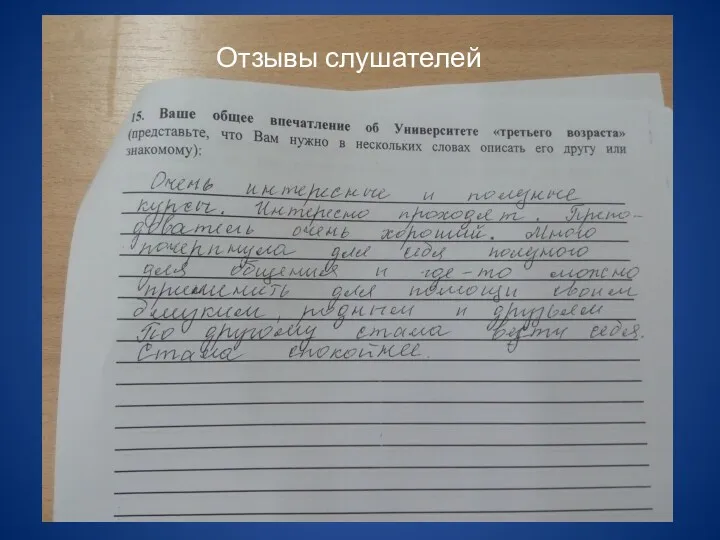 Отзывы слушателей
15. Ваше общее впечатление об Университете «третьего возраста»
(представьте, что Вам нужно в нескольких словах описать его другу или
знакомому):
Очень интересные и полезные
курсы. Интересно проходят. Препо-
даватель очень хороший. Много
почерпнула для себя полезного
для общения и где-то можно
применить для помощи своим
близким, родным и друзьям
По другому стала вести себя.
Стала спокойнее.